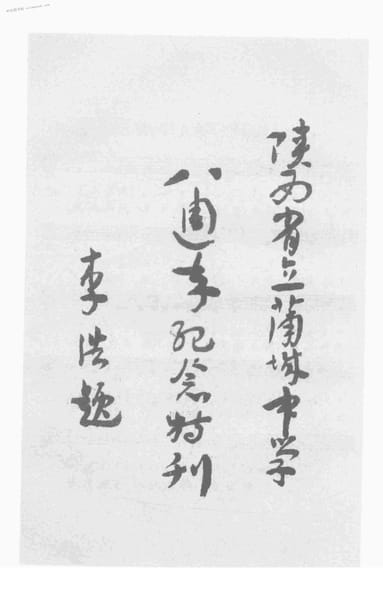 陕西省立蒲城中学
八週年纪念特刊
李浩题